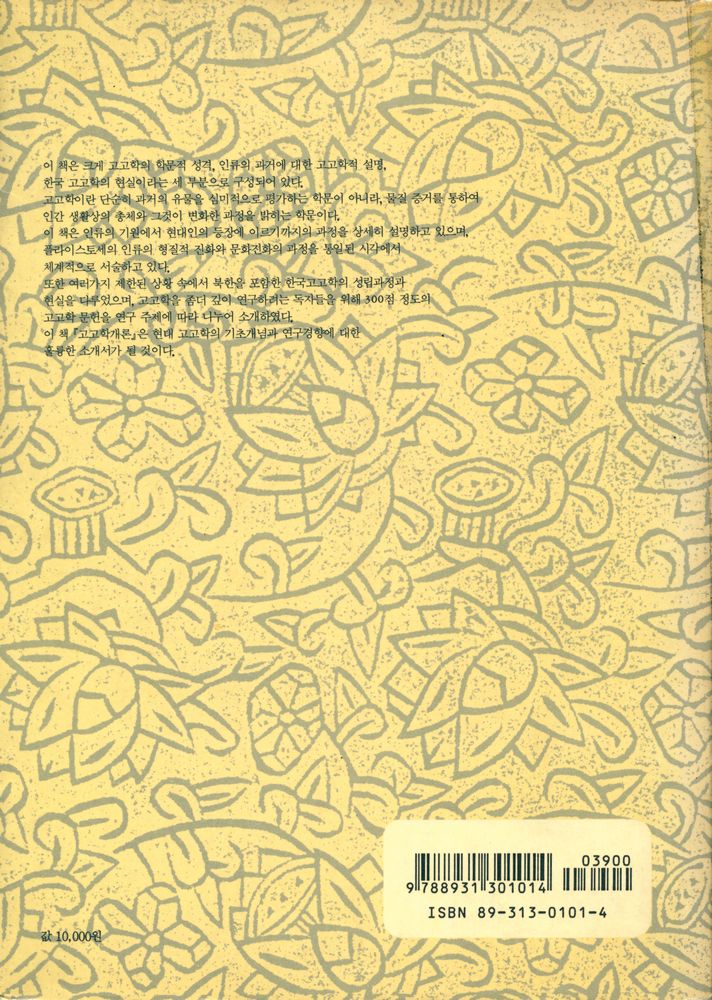 이 책은 크게 고고학의 학문적 성격, 인류의 과거에 대한 고고학적 설명,
한국 고고학의 현실이라는 세 부분으로 구성되어 있다.
고고학이란 단순히 과거의 유물을 심미적으로 평가하는 학문이 아니라, 물질 증거를 통하여
인간 생활상의 총체와 그것이 변화한 과정을 밝히는 학문이다.
이 책은 인류의 기원에서 현대인의 등장에 이르기까지의 과정을 상세히 설명하고 있으며,
플라이스토세의 인류의 형질적 진화와 문화전화의 과정을 통일된 시각에서
체계적으로 서술하고 있다.
또한 여러가지 제한된 상황 속에서 북한을 포함한 한국고고학의 성립과정과
현실을 다루었으며, 고고학을 좀더 깊이 연구하려는 독자들을 위해 300점 정도의
고고학 문헌을 연구 주제에 따라 나누어 소개하였다.
이 책 『고고학개론』은 현대 고고학의 기초개념과 연구경향에 대한
훌륭한 소개서가 될 것이다.
03900
9 788931 301014
ISBN 89-313-0101-4
값 10,000원